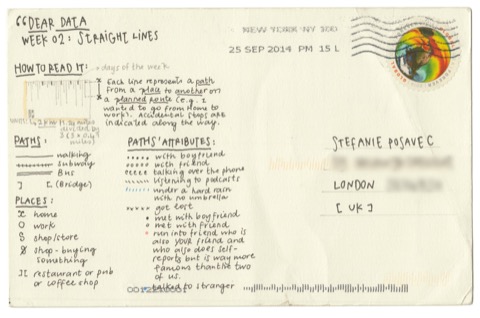 DEAR DATA
WEEK 02: STRAIGHT LINES
NEW YORK NY 100
25 SEP 2014 PM 15 L
HOW TO READ IT:
days of the week
Each line represents a path
from a place to another on
a planned route (e.g. I
wanted to go from home to
work). Accidental stops are
indicated along the way.
PATHS:
walking
subway
Bus
(Bridge)
PLACES:
home
work
shop/store
shop-buying
something
restaurant or pub
or coffee shop
PATHS' ATTRIBUTES:
with boyfriend
with friend
talking over the phone
listening to podcasts
under a hard rain
with no umbrella
got lost
met with boyfriend
met with friend
run into friend who is
also your friend and
who also does self-
reports but is way more
famous than the two
of us.
talked to stranger
STEFANIE POSAVEC
LONDON
[UK]